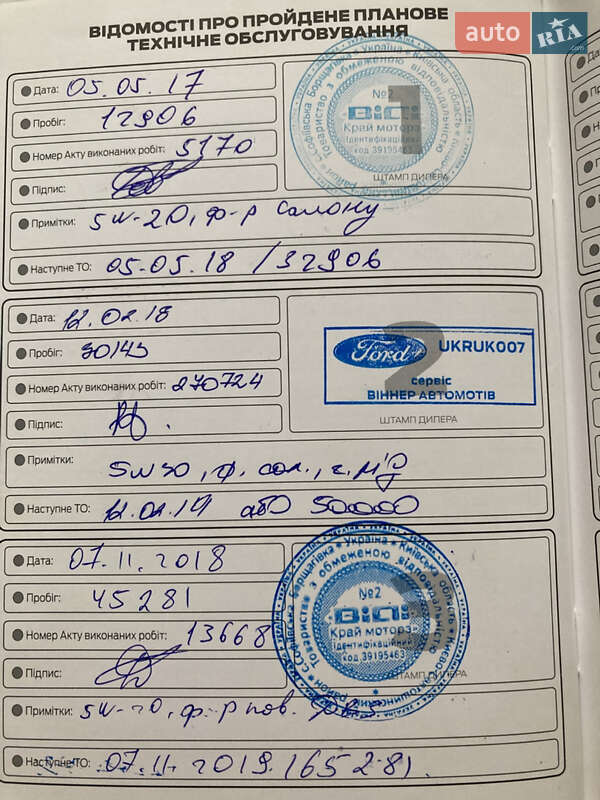 auto RIA .com
ВІДОМОСТІ ПРО ПРОЙДЕНЕ ПЛАНОВЕ
ТЕХНІЧНЕ ОБСЛУГОВУВАННЯ
Дата: 05.05.17
Пробіг: 12906
Номер Акту виконаних робіт: 5170
Підпис:
1
№2
ВіДі
Край моторз
Ідентифікаційний
код 39195463
Україна * Київська область
Товариство з обмеженою відповідальністю
ШТАМП ДИЛЕРА
Примітки: 5w-20, ф-р салону
Наступне ТО: 05.05.18 / 32906
Дата: 12.02.18
Пробіг: 30145
Номер Акту виконаних робіт: 270724
Підпис:
2
Ford UKRUK007
сервіс
ВІННЕР АВТОМОТІВ
ШТАМП ДИЛЕРА
Примітки: 5w30, ф. сал.,
Наступне ТО: 12.02.19 або 50000
Дата: 07.11.2018
Пробіг: 45281
Номер Акту виконаних робіт: 13668
Підпис:
№2
ВіДі
Край моторз
Ідентифікаційний
код 39195463
Борщагівка * Україна * Київська область
Товариство з обмеженою відповідальністю
ШТАМП ДИЛЕРА
Примітки: 5w-20, ф-р пов.
Наступне ТО: 07.11.2019 / 65281.